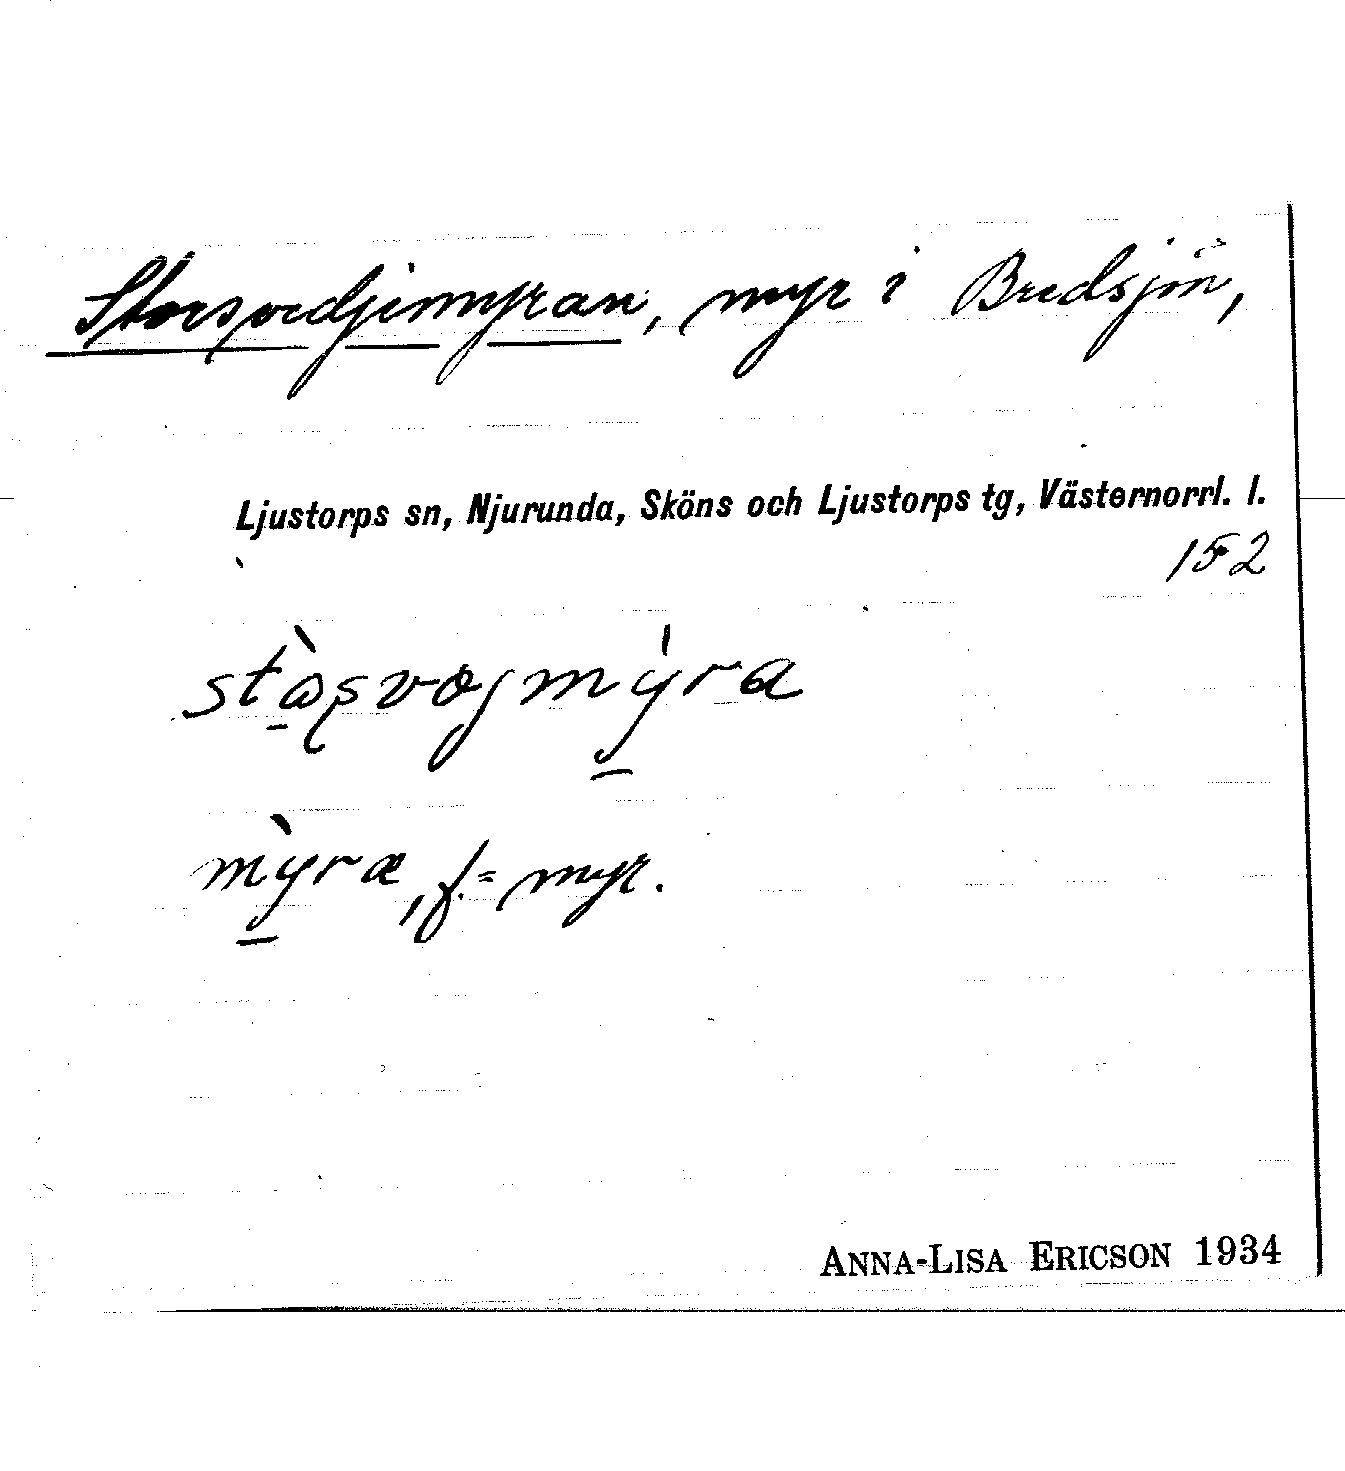 Storsvedjemyran, myr i Bredsjön,
Ljustorps sn, Njurunda, Sköns och Ljustorps tg, Västernorrl. l.
152
myra, f. = myr.
ANNA-LISA ERICSON 1934